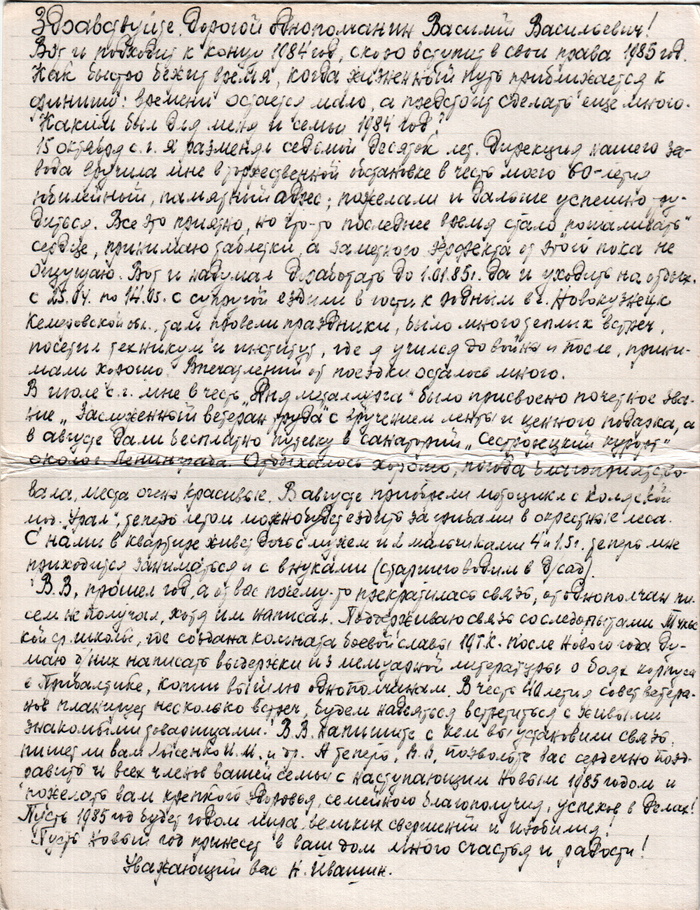 Здравствуйте, Дорогой Однополчанин Василий Васильевич!
Вот и подходит к концу 1984 год, скоро вступит в свои права 1985 год.
Как быстро бежит время, когда жизненный путь приближается к
финишу: времени остается мало, а предстоит сделать еще много.
Каким был для меня и семьи 1984 год?
15 октября с.г. я разменял седьмой десяток лет. Дирекция нашего за-
вода вручила мне в торжественной обстановке в честь моего 60-летия
юбилейный, памятный адрес; пожелали и дальше успешно тру-
диться. Все это приятно, но что-то последнее время стало пошаливать
сердце, принимаю таблетки, а заметного эффекта от этого пока не
ощущаю. Вот и надумал доработать до 1.01.85г. да и уходить на отдых.
с 25.04. по 14.05. с супругой ездили в гости к родным в г. Новокузнецк
Кемеровской обл., там провели праздники, было много теплых встреч,
посетил техникум и институт, где я учился до войны и после, прини-
мали хорошо. Впечатлений от поездки осталось много.
В июле с.г. мне в честь „Дня металлурга" было присвоено почетное зва-
ние „Заслуженный ветеран труда" с вручением ленты и ценного подарка, а
в августе дали бесплатно путевку в санаторий „Сестрорецкий курорт"
около Ленинграда. Отдыхалось хорошо, погода благоприятство-
вала, места очень красивые. В августе приобрели мотоцикл с коляской
мод. „Урал", теперь летом можно будет ездить за грибами в окрестные леса.
С нами в квартире живет дочь с мужем и 2 мальчиками 4 и 1,5г. теперь мне
приходится заниматься и с внуками (старшего водим в д/сад).
В.В., прошел год, а от вас почему-то прекратилась связь, от однополчан пи-
сем не получал, хотя им написал. Поддерживаю связь со следопытами
кой ср. школы, где создана комната боевой славы 19 Т.К. После Нового года ду-
маю о них написать выдержки из мемуарной литературы о боях корпуса
в Прибалтике, копии вышлю однополчанам. В честь 40 летия совет ветера-
нов планирует несколько встреч, будем надеяться встретиться с живыми
знакомыми товарищами. В.В. напишите с кем вы установили связь,
пишет ли вам Лысенко И.М. и др. А теперь, В.В., позвольте вас сердечно позд-
равить и всех членов вашей семьи с наступающим Новым 1985 годом и
пожелать вам крепкого здоровья, семейного благополучия, успехов в делах!
Пусть 1985 год будет годом мира, великих свершений и изобилия!
Пусть Новый год принесет в ваш дом много счастья и радости!
Уважающий вас Н. Ивашин.